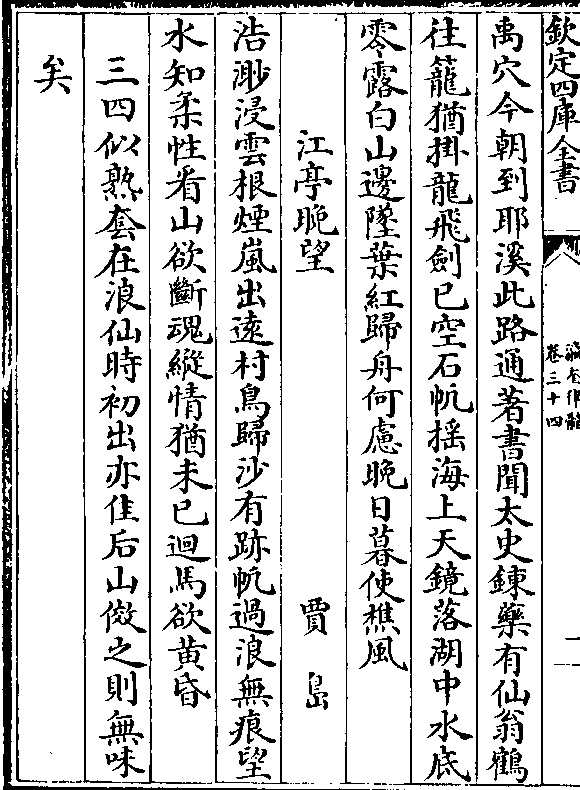 欽定四庫全書
瀛奎律髓
卷三十四
禹穴今朝到耶溪此路通著書聞太史鍊藥有仙翁鶴
往籠猶掛龍飛劍已空石帆揺海上天鏡落湖中水底
零露白山邊墜葉紅歸舟何慮晚日暮使樵風
江亭晚望 賈島
浩渺浸雲根煙嵐出逺村鳥歸沙有跡帆過浪無痕望
水知柔性看山欲斷魂縱情猶未已迴馬欲黄昏
三四似熟套在浪仙時初出亦佳后山傚之則無味
矣